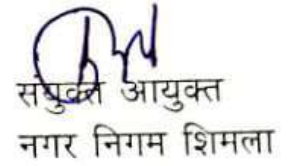 संयुक्त आयुक्त
नगर निगम शिमला